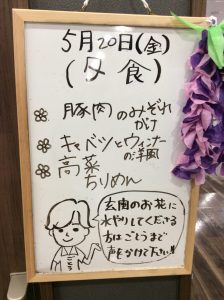 5月20日(金)
(夕食)
豚肉のみぞれ
がけ
キャベツとウィンナー
の洋風
高菜
ちりめん
玄関のお花に
水やりしてくださる
方はごとうまで
声をかけて下さい!!
ごとう